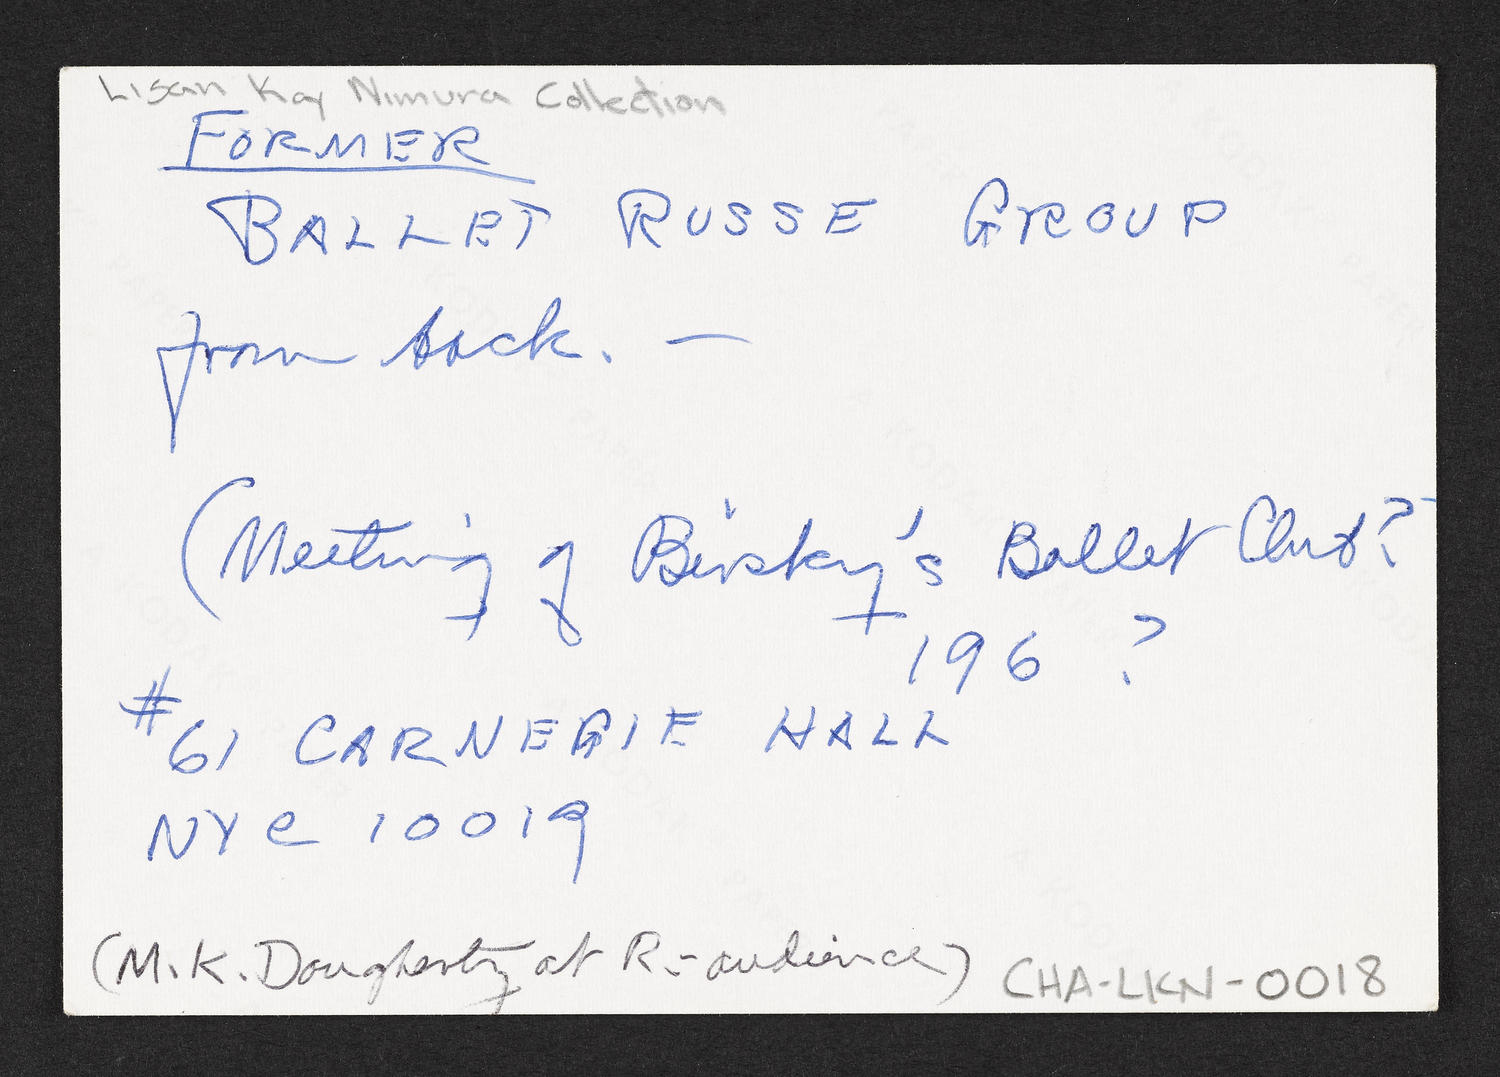 Lisan Kay Nimura Collection
FORMER
BALLET RUSSE GROUP
from back. —
(Meeting of Birsky's Ballet Club?
196 ?
#61 CARNEGIE HALL
NYC 10019
(M.K. Dougherty at R-audience)
CHA-LKN-0018